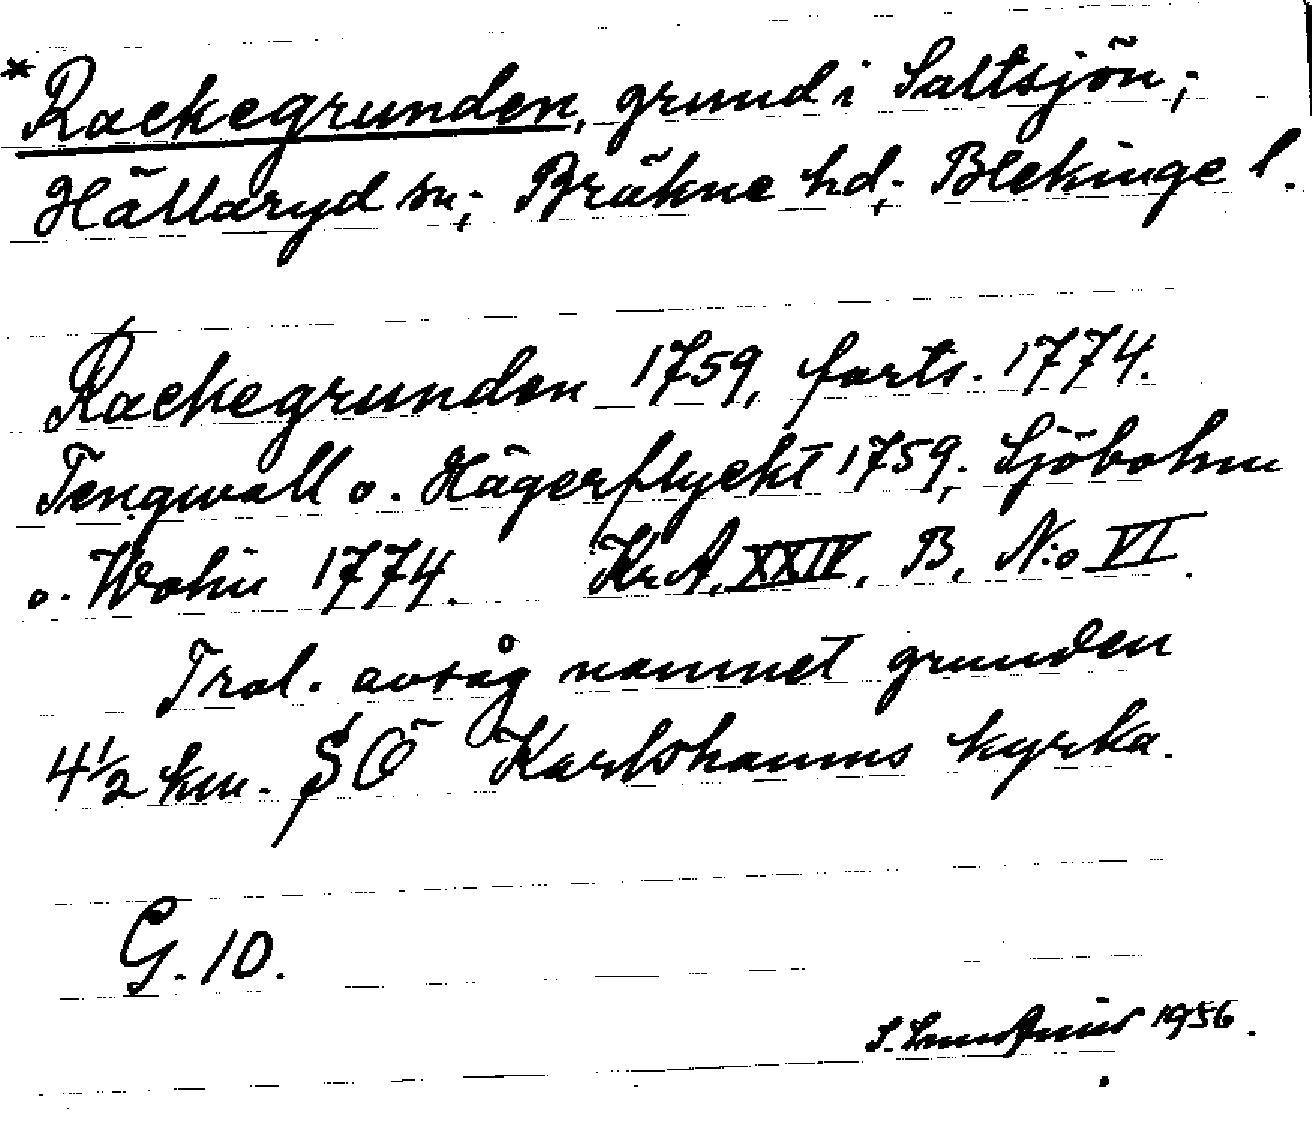 *Rackegrunden, grund i Saltsjön;
Hällaryd sn; Bräkne hd; Blekinge l.
Rackegrunden 1759, forts. 1774.
Tengwall o. Hägerflycht 1759; Sjöbohm
o. Wohn 1774. KrA, XXIV, B, N:o VI.
Trol. avsåg namnet grunden
4 1/2 km. SÖ Karlshamns kyrka.
G. 10.
S. 1956.